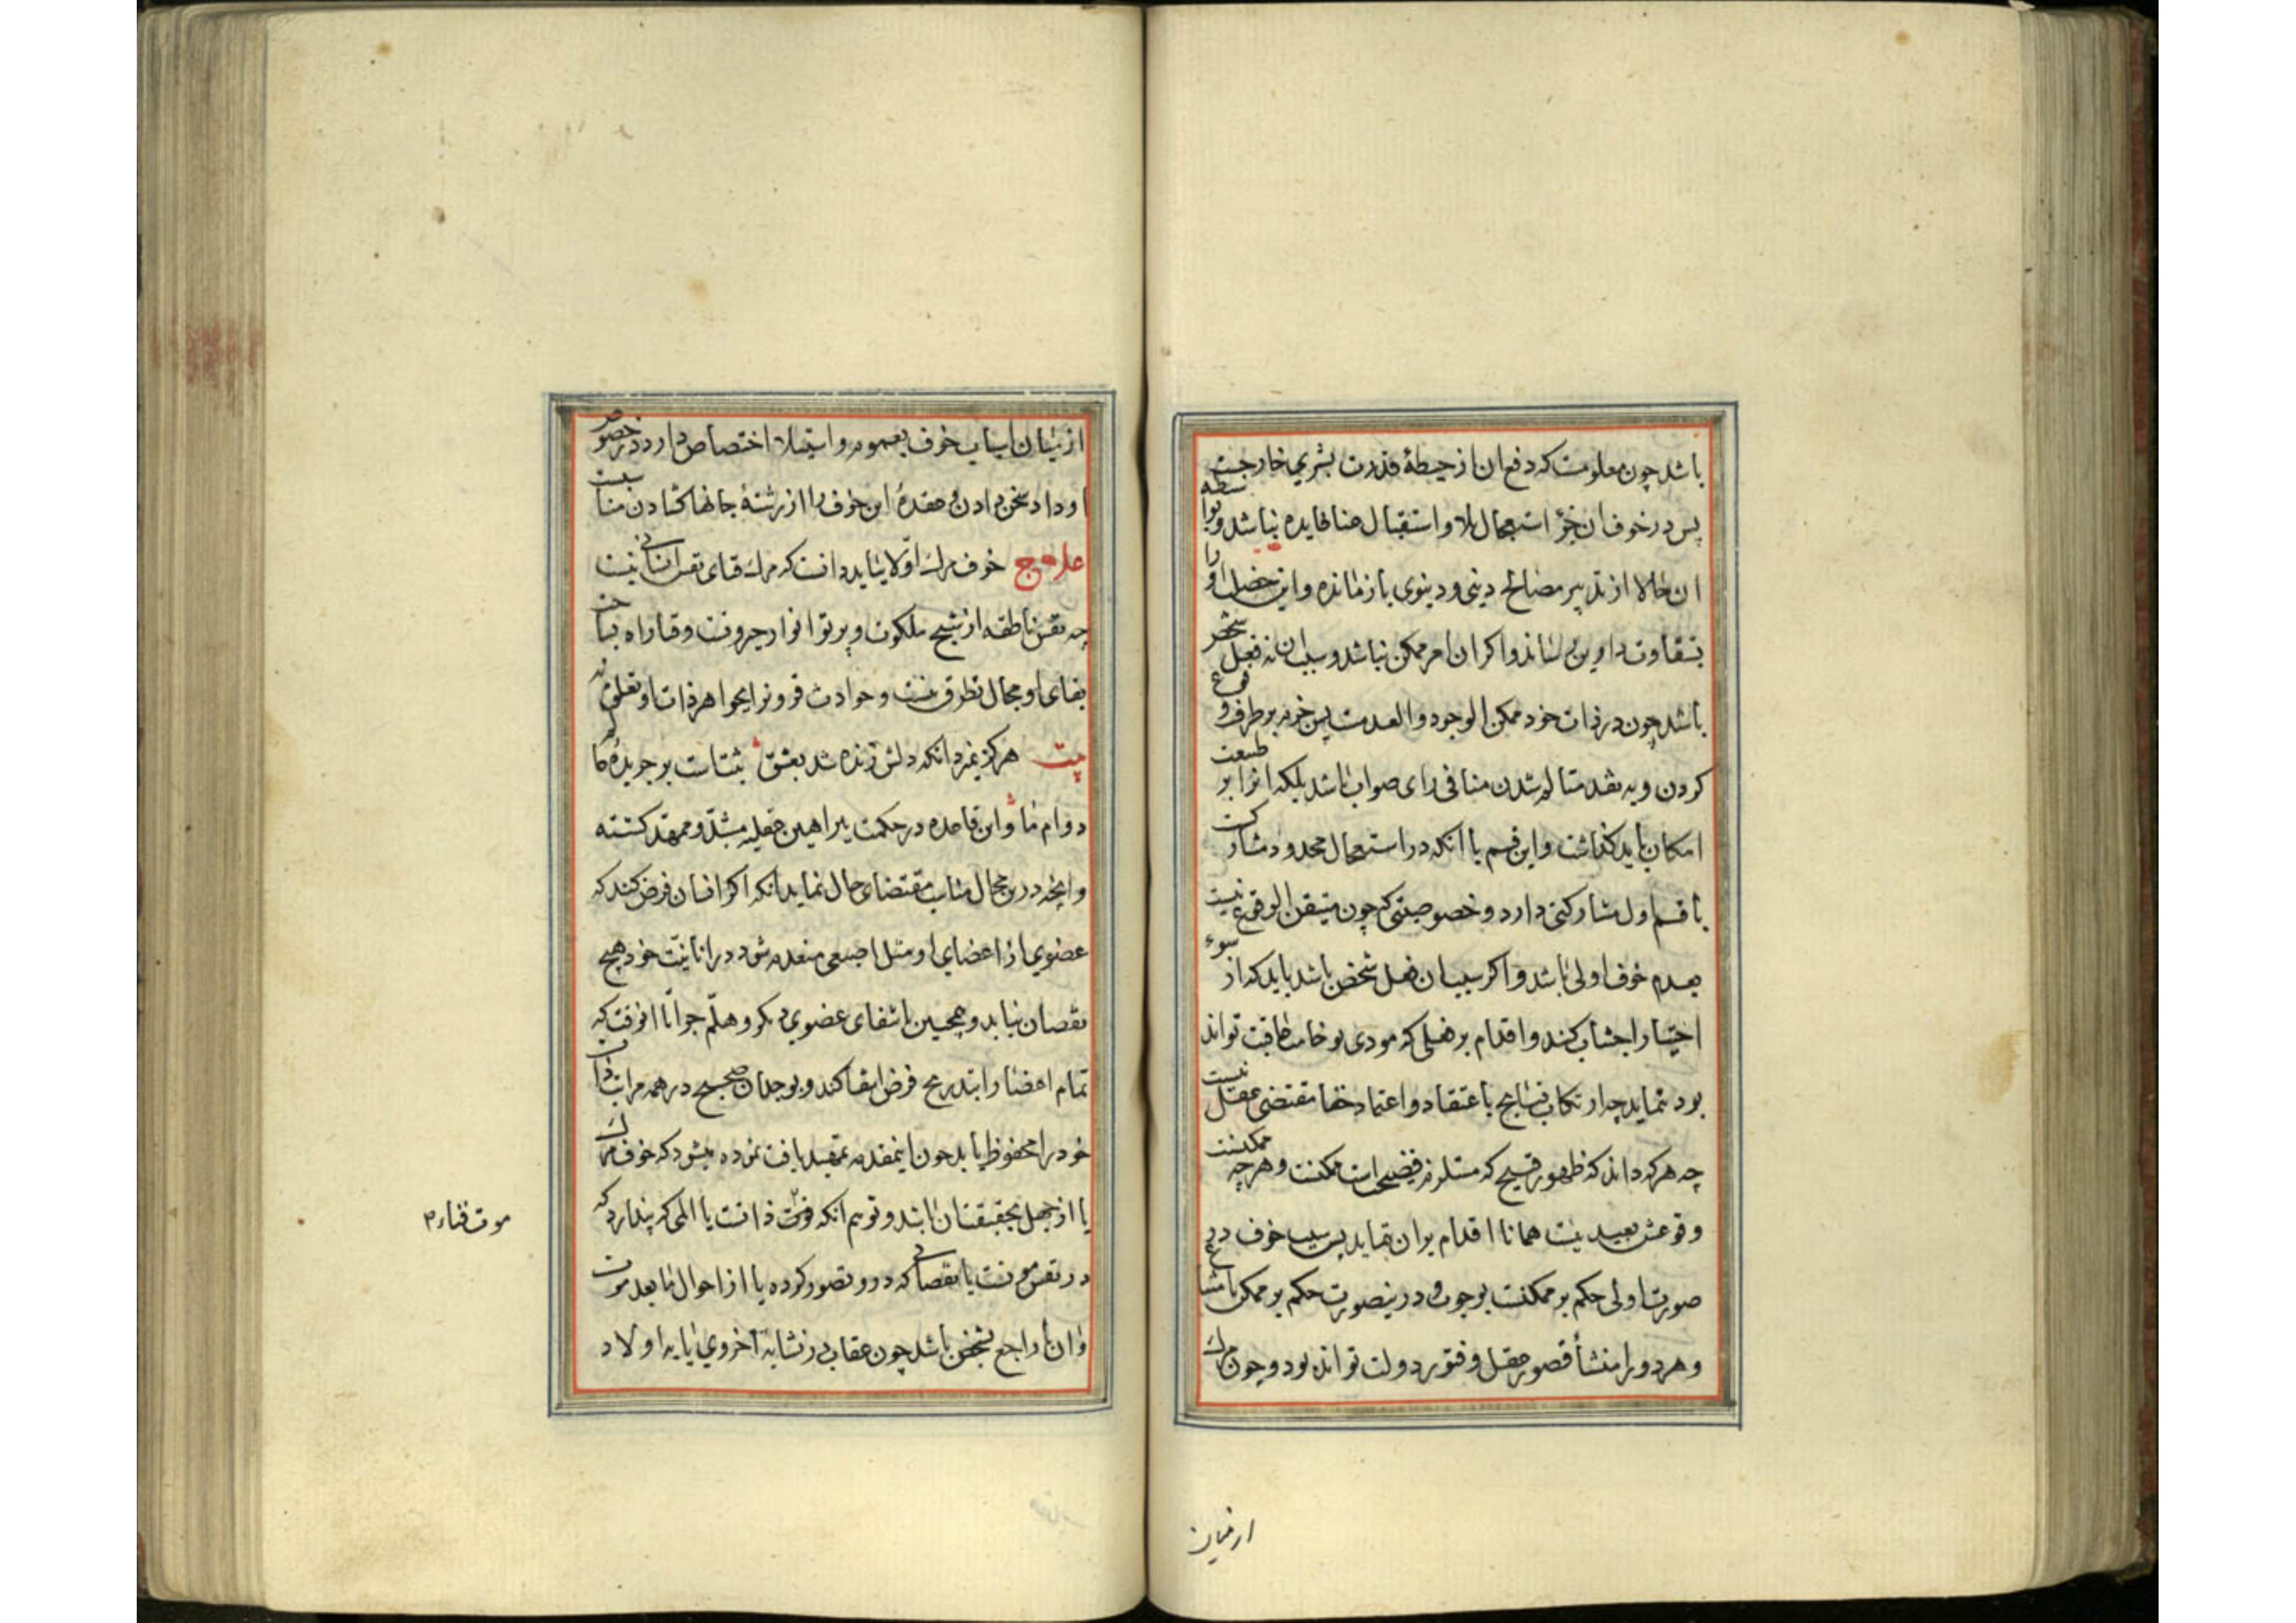 باشد چون معلومست که دفع ان از حیطهٔ قدرت بشری خارجست
پس در خوف ان جز استعجال بلا و استقبال عنا فایده نباشد و بواسطه
ان حالا از تدبیر مصالح دینی و دینوی باز ماند و این خصلت او را
بشقاوت دارین رساند و اکر ان امر ممکن نباشد و سبب ان نه فعل شخص
باشد چون در ذات خود ممکن الوجود و العدمست پس جزم بر طرف وقوع
کردن و به نقد متالم شدن منافی رای صواب باشد بلکه انرا بر طبیعت
امکان باید کذاشت و این قسم با انکه در استعجال محدود مشارکت
با قسم اول مشارکتی دارد و خصوصیتی که چون متیقن الوقوع نیست
بعدم خوف اولی باشد و اکر سبب ان فعل شخص باشد باید که از سوء
اختیار اجتناب کند و اقدام بر فعلی که مودی بوخامت عاقبت تواند
بود ننماید چه ارتکاب قبایح باعتقاد و اعتماد خفا مقتضی عقل نیست
چه هر که داند که ظهور قبیح که مستلزم فضیحت است ممکنست و هر چه ممکنست
وقوعش بعید نیست همانا اقدام بران ننماید پس سبب خوف در
صورت اولی حکم بر ممکنست بوجوب و درینصورت حکم بر ممکن بامتناع
و هر دو را منشأ قصور عقل و فتور دولت تواند بود و چون خوف مرک
از میان
از میان اسباب خوف بعموم و استیلا اختصاص دارد در خصوص
او داد سخن دادن و عقدهٔ این خوف را از رشتهٔ جانها کشادن مناسبست
علاج خوف مرک اولا بباید دانست که مرک فنای نفس انسانی نیست
چه نفس ناطقه از سنخ ملکوت و پرتو انوار جبروتست و فنا را بساحت
بقای او مجال تطرق نیست و حوادث قرون را بجواهر ذات او تعلق نه
بیت هرکز نمیرد انکه دلش زنده شد بعشق ثبتاست بر جریدهٔ عالم
دوام ما و این قاعده در حکمت ببراهین عقلیه مشید و ممهد کشته
و انچه درین مجال مناسب مقتضای حال نماید انکه اکر انسان فرض کند که
عضوی از اعضای او مثل اصبعی منعدم شود در انانیت خود هیچ
نقصان نیابد و همچنین بانتفای عضوی دیکر و هلم جرا تا انوقت که
تمام اعضا را بتدریج فرض انتفا کند و بوجدان صحیح در همه مراتب ذات
خود را محفوظ یابد چون اینمقدمه تمهید یافت نموده میشود که خوف مرک
یا از جهل بحقیقت ان باشد و توهم انکه فوت ذاتست یا المی که پندارد که
در نفس موتست یا نقصانی که درو تصور کرده یا از احوال ما بعد موت
و ان یا راجع بشخص باشد چون عقاب در نشاهٔ اخروی یا به اولاد
موت فناء م